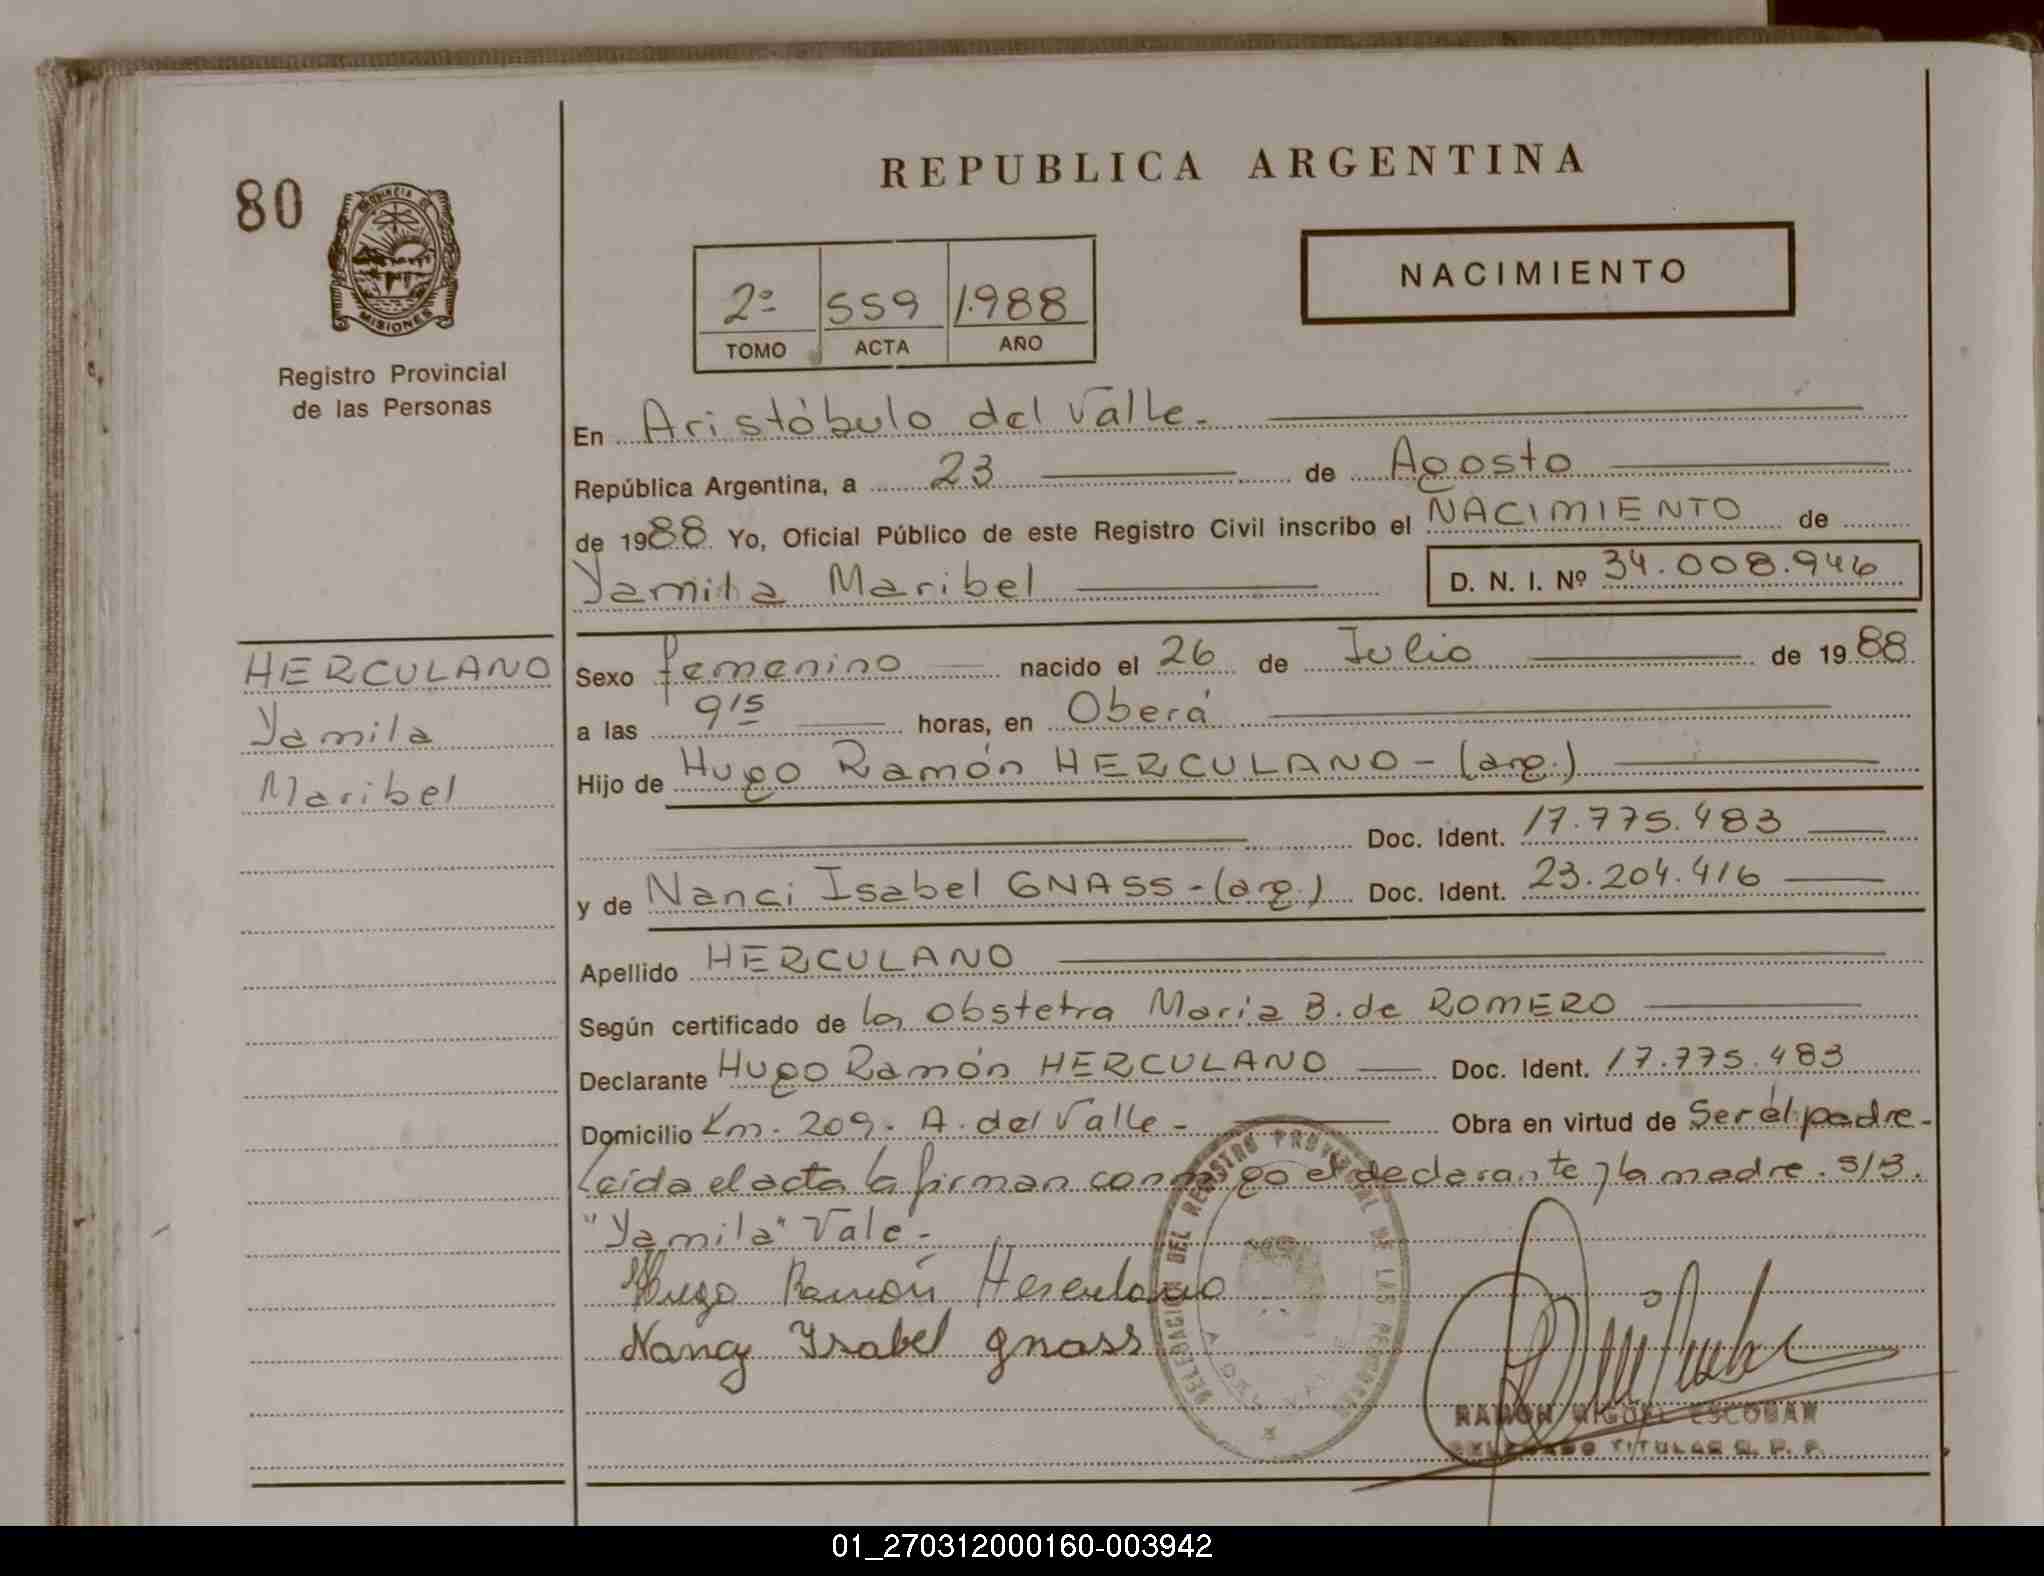 REPUBLICA ARGENTINA
80
PROVINCIA DE
MISIONES
Registro Provincial
de las Personas
2º 559 1.988
TOMO ACTA AÑO
NACIMIENTO
En Aristóbulo del Valle.
República Argentina, a 23 de Agosto
de 1988. Yo, Oficial Público de este Registro Civil inscribo el NACIMIENTO de
Yamila Maribel D. N. I. Nº 34.008.946
HERCULANO
Yamila
Maribel
Sexo femenino nacido el 26 de Julio de 1988.
a las 9 15 horas, en Oberá
Hijo de Hugo Ramón HERCULANO - (arg.)
Doc. Ident. 17.775.483
y de Nanci Isabel GNASS - (arg.) Doc. Ident. 23.204.416
Apellido HERCULANO
Según certificado de la Obstetra María B. de ROMERO
Declarante Hugo Ramón HERCULANO Doc. Ident. 17.775.483
Domicilio Km. 209. A. del Valle - Obra en virtud de Ser el padre -
Leída el acta la firman conmigo el declarante y la madre. S/B.
"Yamila" Vale -
Hugo Ramón Herculano
Nancy Ysabel gnass
DELEGACION DEL REGISTRO PROVINCIAL DE LAS PERSONAS
A. DEL VALLE
RAMON MIGUEL ESCOBAR
DELEGADO TITULAR R. P. P.
01_270312000160-003942